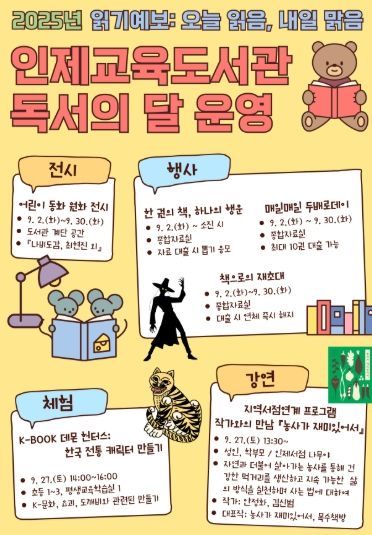 2025년 읽기예보: 오늘 읽음, 내일 맑음
인제교육도서관
독서의 달 운영
전시
어린이 동화 원화 전시
• 9. 2.(화)~9. 30.(화)
• 도서관 계단 공간
• 『나비도감, 최현진 외』
행사
한 권의 책, 하나의 행운
• 9. 2.(화) ~ 소진 시
• 종합자료실
• 자료 대출 시 뽑기 응모
매일매일 두배로데이
• 9. 2.(화) ~ 9. 30.(화)
• 종합자료실
• 최대 10권 대출 가능
책으로의 재초대
• 9. 2.(화)~9. 30.(화)
• 종합자료실
• 대출 시 연체 즉시 해지
체험
K-BOOK 데몬 헌터스:
한국 전통 캐릭터 만들기
• 9. 27.(토) 14:00~16:00
• 초등 1~3, 평생교육학습실 1
• K-문화, 요괴, 도깨비와 관련된 만들기
강연
지역서점연계 프로그램
작가와의 만남 『농사가 재미있어서』
• 9. 27.(토) 13:30~
• 성인, 학부모 / 인제서점 나무야
• 자연과 더불어 살아가는 농사를 통해 건
강한 먹거리를 생산하고 지속 가능한 삶
의 방식을 실천하며 사는 법에 대하여
• 작가: 안정화, 김신범
• 대표작: 농사가 재미있어서, 목수책방